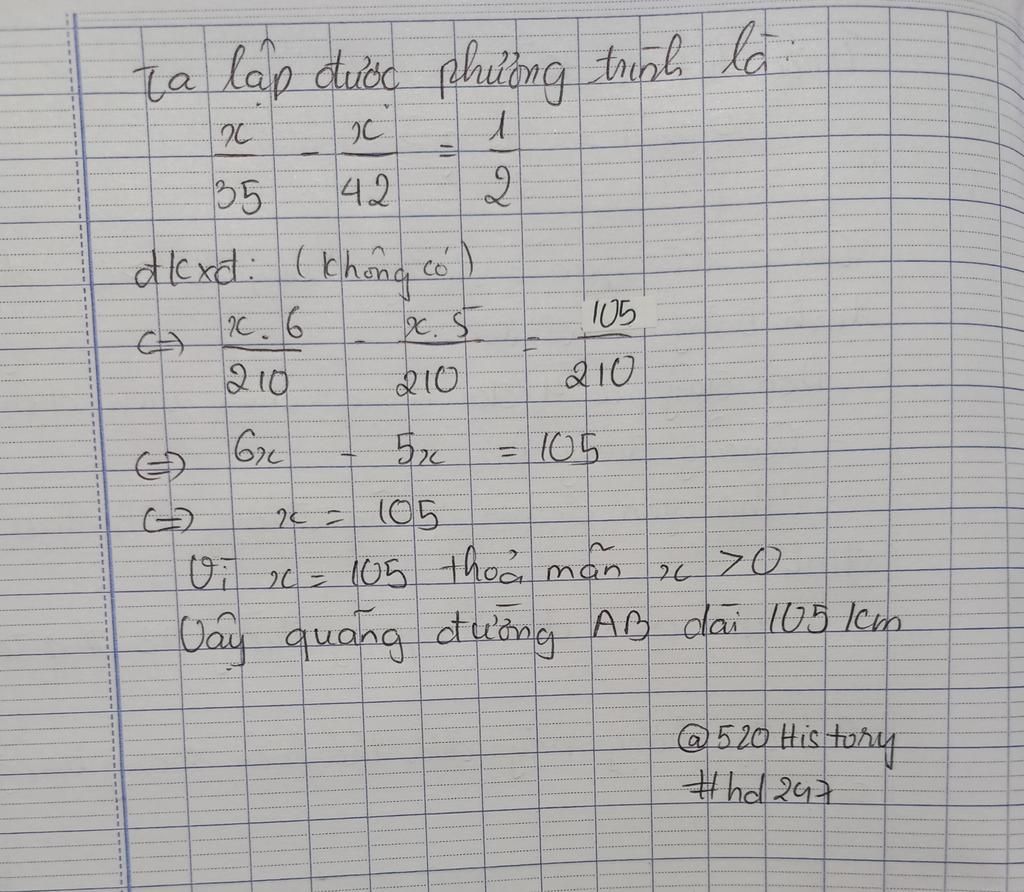 Ta lập được phương trình là:
x/35 - x/42 = 1/2
đkxđ: (không có)
⇔ x.6/210 - x.5/210 = 105/210
⇔ 6x - 5x = 105
⇔ x = 105
Vì x = 105 thoả mãn x > 0
Vậy quãng đường AB dài 105 km
@520 History
#hd247